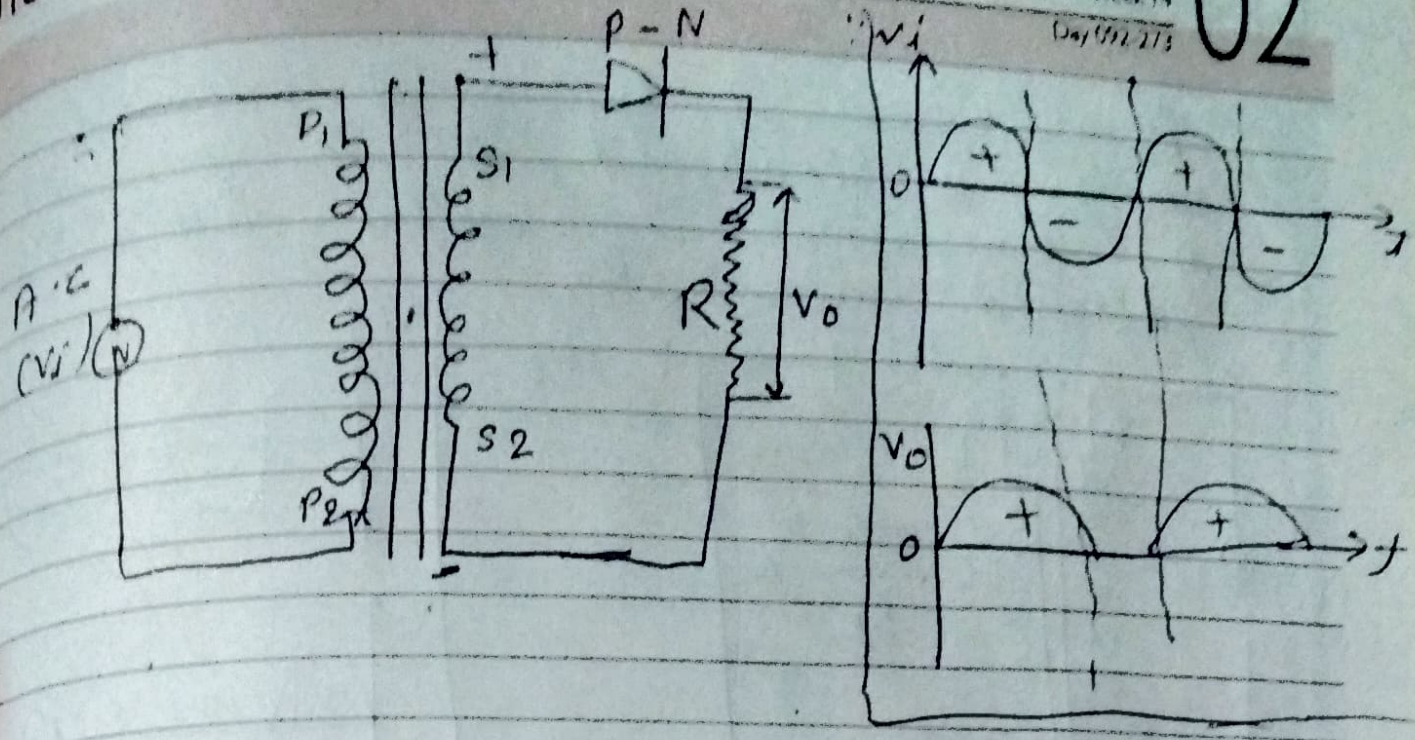 02
P - N
+
P1
S1
A.C
(Vi)
R
V0
S2
P2
-
Vi
0
+
-
+
-
V0
0
+
+
t